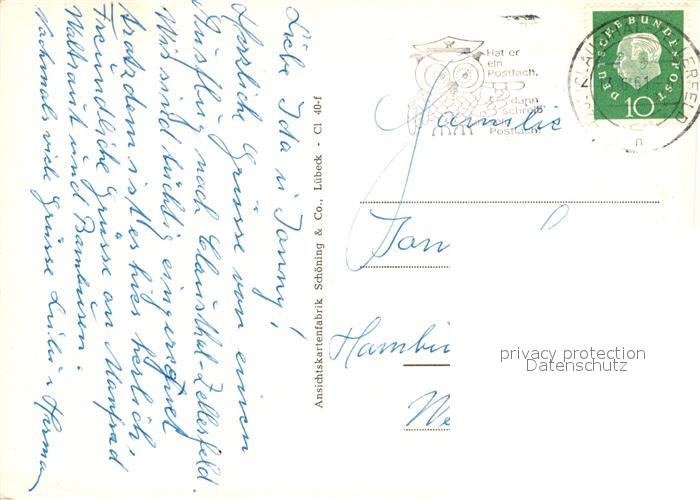 Liebe Ida u Jonny!
Herzliche Grüsse von einen
Ausflug nach Clausthal-Zellerfeld.
Wir sind tüchtig eingeregnet
trotzdem ist es hier herlich,
Freundliche Grüsse an Manfrad
Waltraut und
Nochmals viele Grüsse u Herman
Ansichtskartenfabrik Schöning & Co., Lübeck - Cl 40-f
Hat er
ein
Postfach,
dann
schreib'
Postfach
CLAUSTHAL-ZELLERFELD
DEUTSCHE BUNDESPOST
10
Familie
privacy protection
Datenschutz